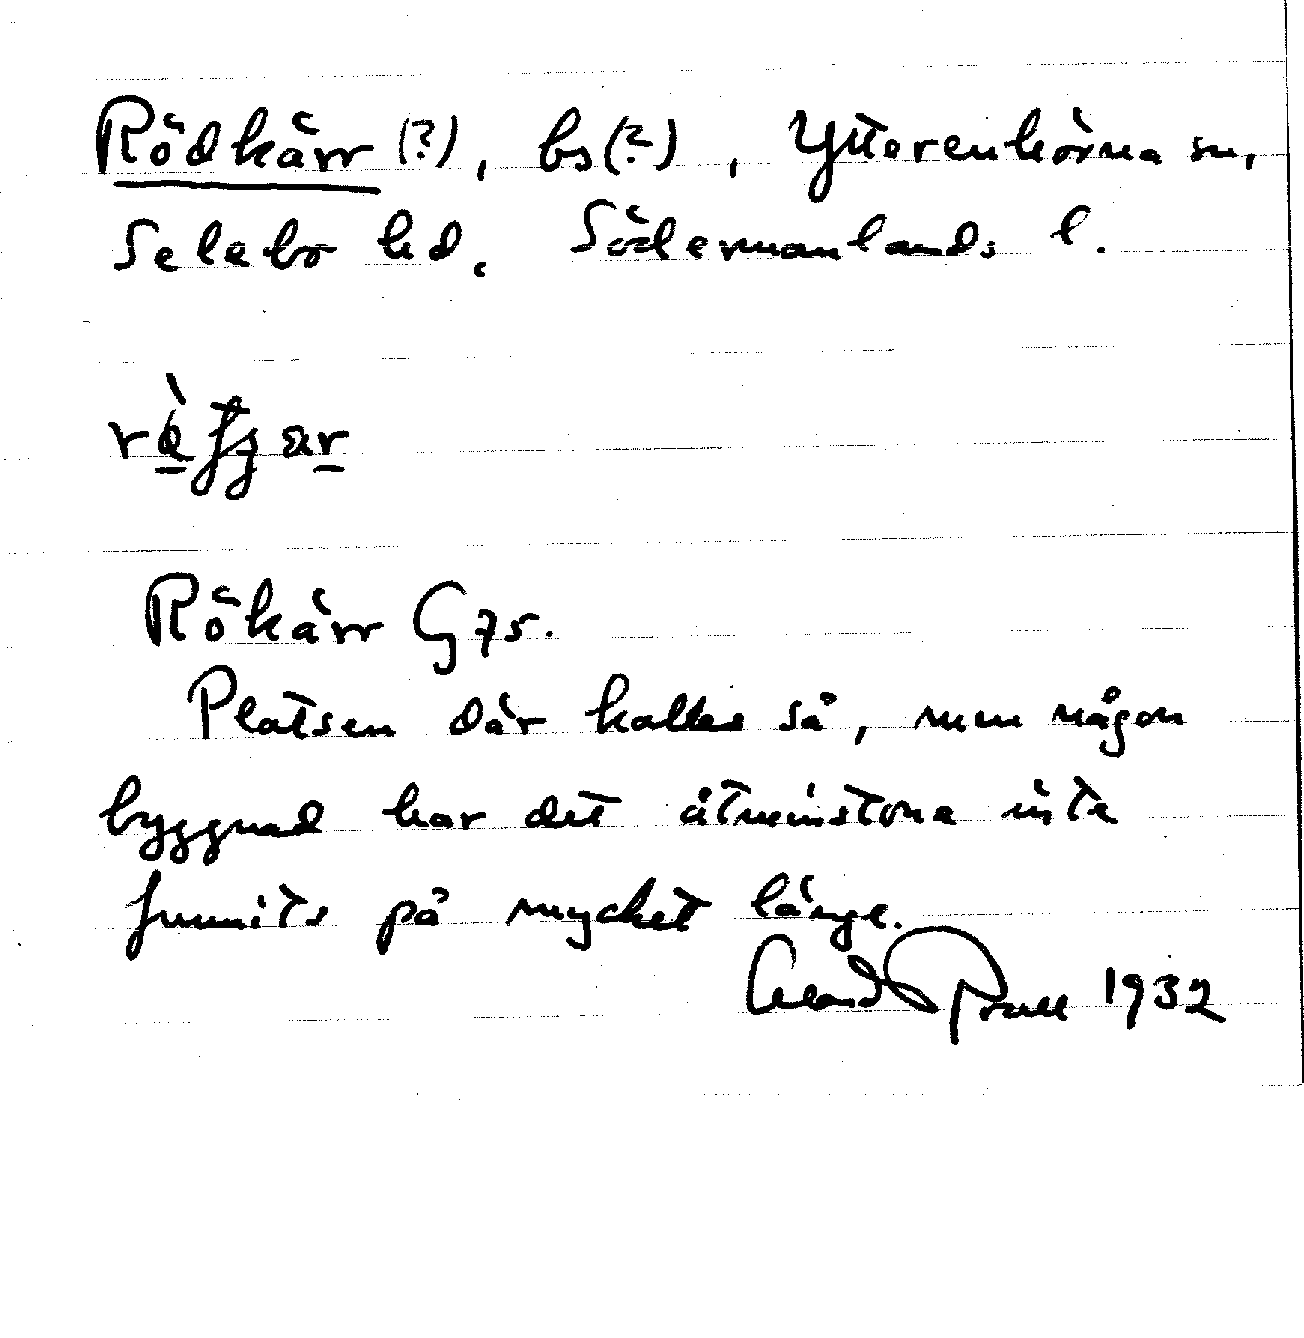 Rödkärr (?), bs (?), Ytterenhörna sn,
Selebo hd, Södermanlands l.
Rökärr G 75.
Platsen där kallas så, men någon
byggnad har det åtminstone inte
funnits på mycket länge.
1932